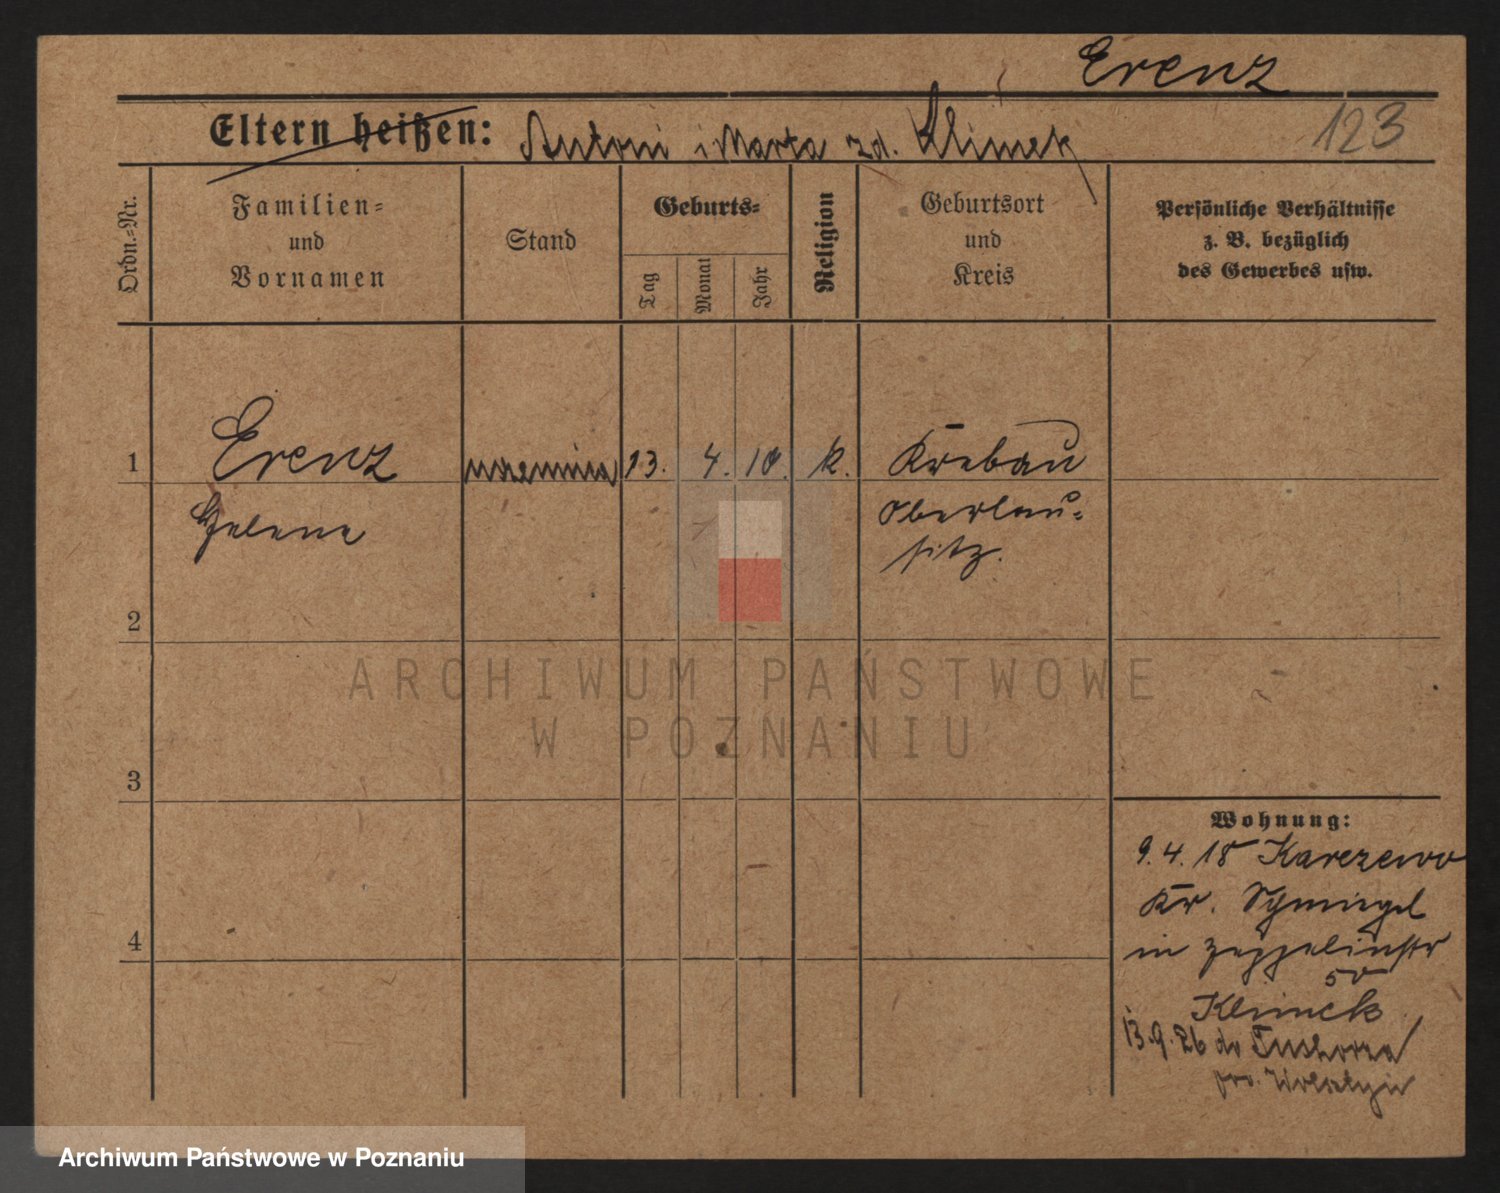 Erenz
123
Eltern heißen: Antoni i Marta zd. Klimek
Ordn.-Nr.
Familien-
und
Vornamen
Stand
Geburts-
Tag
Monat
Jahr
Religion
Geburtsort
und
Kreis
Persönliche Verhältnisse
z. B. bezüglich
des Gewerbes usw.
1 Erenz 13. 4. 10. k. Krebau
Helena Oberlau-
sitz.
2
ARCHIWUM PAŃSTWOWE
W POZNANIU
3
Wohnung:
9.4.18 Karczewo
Kr. Schmiegel
in Zeppelinstr
50
4
Klimek
13.9.26 do
Archiwum Państwowe w Poznaniu